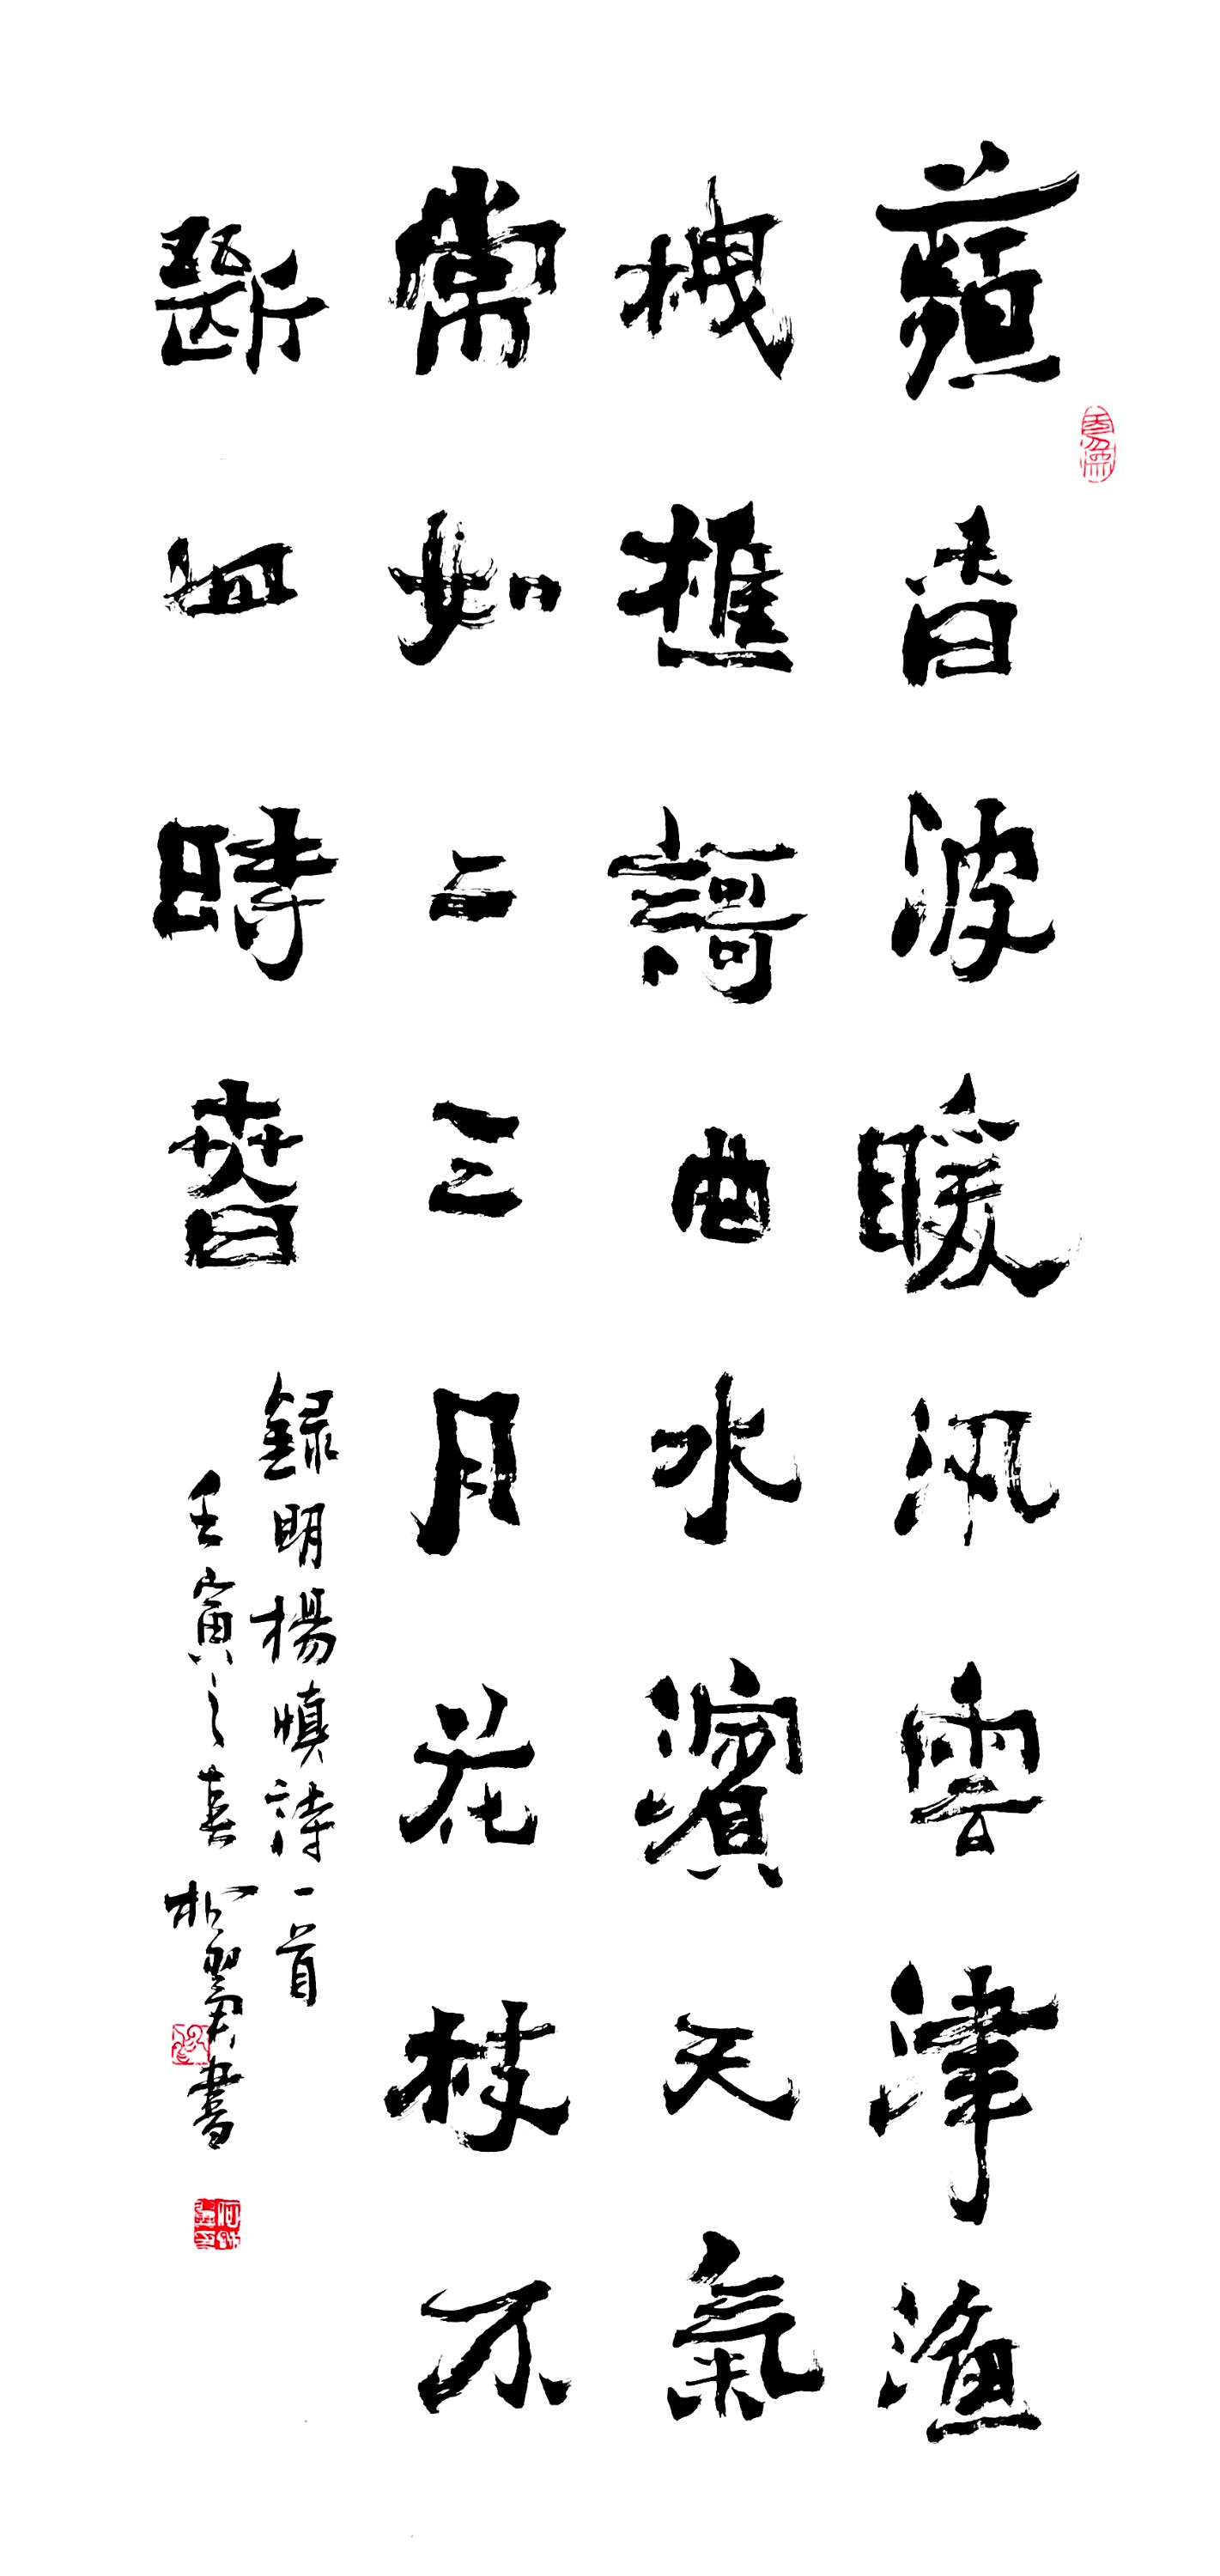 蘋香波暖汎雲津漁
枻樵謌曲水濱天氣
常如二三月花枝不
斷四時春
録明楊慎詩一首
壬寅之春松書